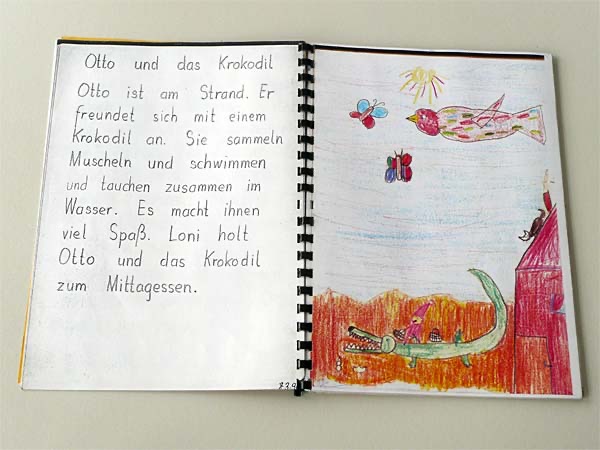 Otto und das Krokodil
Otto ist am Strand. Er
freundet sich mit einem
Krokodil an. Sie sammeln
Muscheln und schwimmen
und tauchen zusammen im
Wasser. Es macht ihnen
viel Spaß. Loni holt
Otto und das Krokodil
zum Mittagessen.